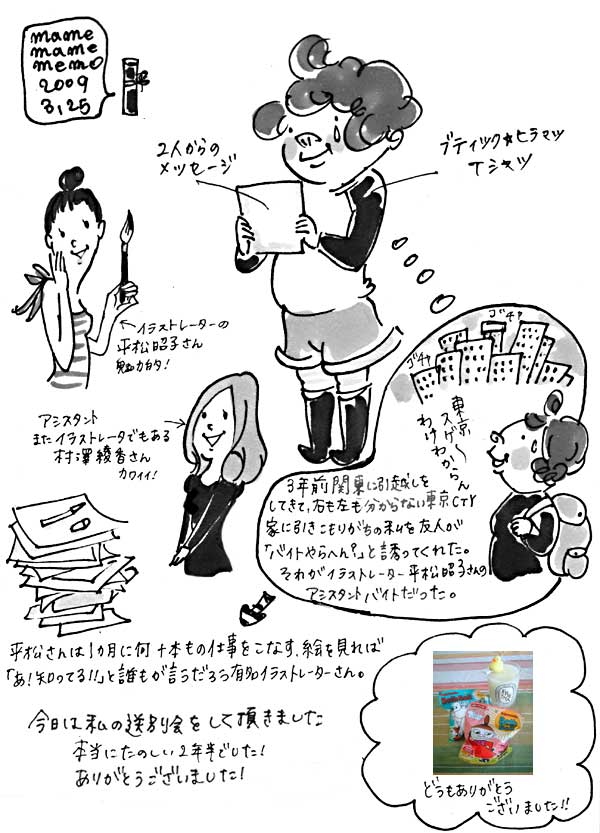 mame
mame
memo
2009
3,25
2人からの
メッセージ
ブティック★ヒラマツ
Tシャツ
イラストレーターの
平松昭子さん
魅力的!
アシスタント
またイラストレータでもある
村澤綾香さん
カワイイ!
ゴチャ
ゴチャ
東京〜
スゲーわからん
3年前関東に引越しを
してきて、右も左も分からない東京CTY
家に引きこもりがちの私を友人が
「バイトやらへん?」と誘ってくれた。
それがイラストレーター平松昭子さんの
アシスタントバイトだった。
平松さんは1か月に何十本もの仕事をこなす、絵を見れば
「あ!知ってる!!」と誰もが言うだろう有名イラストレーターさん。
今日は私の送別会をして頂きました
本当にたのしい2年半でした!
ありがとうございました!
どうもありがとう
ございました!!